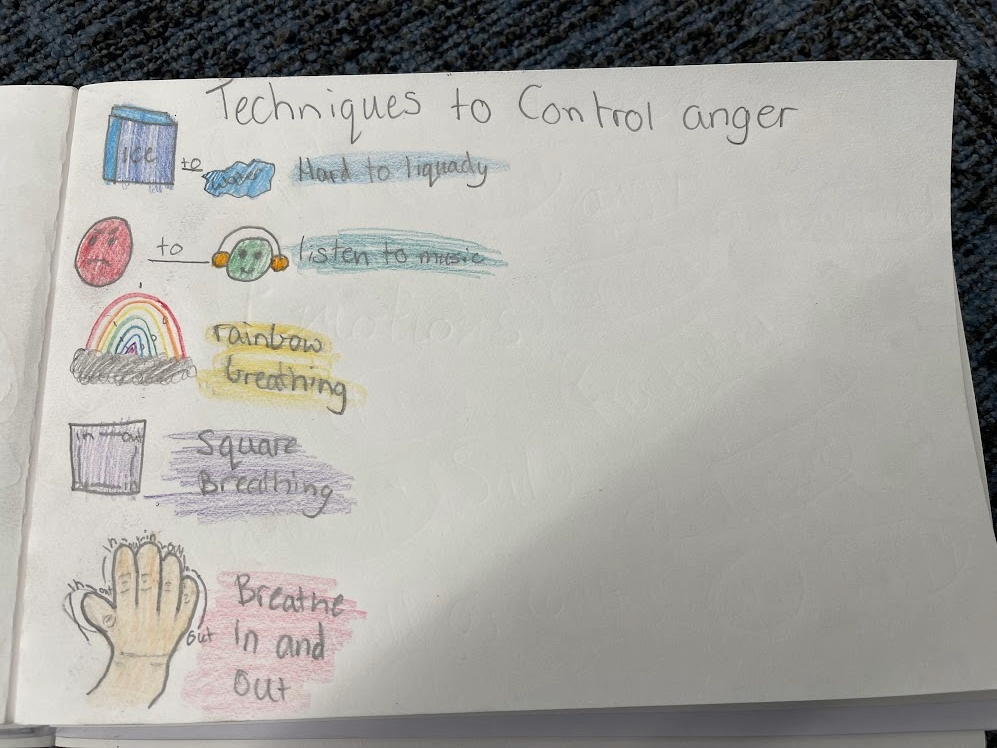 Techniques to Control anger
ICE to water Hard to liquady
to listen to music
rainbow
breathing
in out
Square
Breathing
in out in out in out
out
Breathe
in and
out